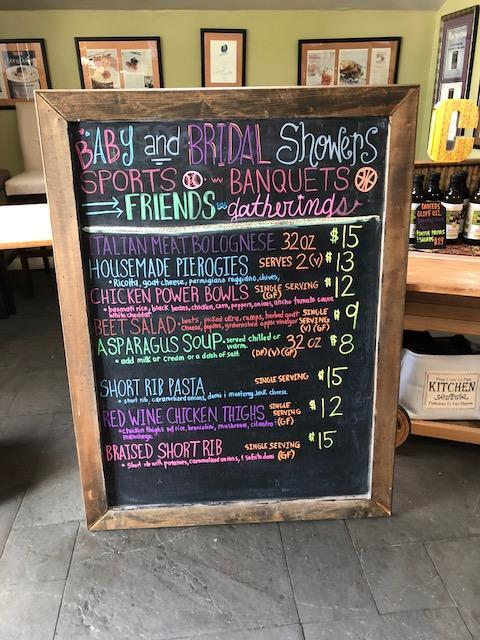 BABY and BRIDAL Showers
SPORTS BANQUETS
FRIENDS gatherings
ITALIAN MEAT BOLOGNESE 32 OZ $15
HOUSEMADE PIEROGIES SERVES 2 (V) $13
• Ricotta, goat cheese, parmigiano reggiano, chives,
CHICKEN POWER BOWLS SINGLE SERVING (GF) $12
• basmati rice, black beans, chicken, corn, peppers, onions, ancho tomato sauce
white cheddar
BEET SALAD • beets, pickled okra, ramps, herbed goat SINGLE SERVING $9
cheese, pepitas, apple vinegar (V) (GF)
ASPARAGUS SOUP • served chilled or warm. 32 OZ $8
• add milk or cream or a dash of salt. (DF) (V) (GF)
SHORT RIB PASTA SINGLE SERVING $15
• short rib, caramelized onions, demi, monterey jack cheese
RED WINE CHICKEN THIGHS SINGLE SERVING (GF) $12
• chicken thighs w/ rice, broccolini, mushroom, cilantro,
manchego.
BRAISED SHORT RIB SINGLE SERVING (GF) $15
• Short rib with potatoes, caramelized onions, & sofrito demi
OLIVE OIL
$19
KITCHEN